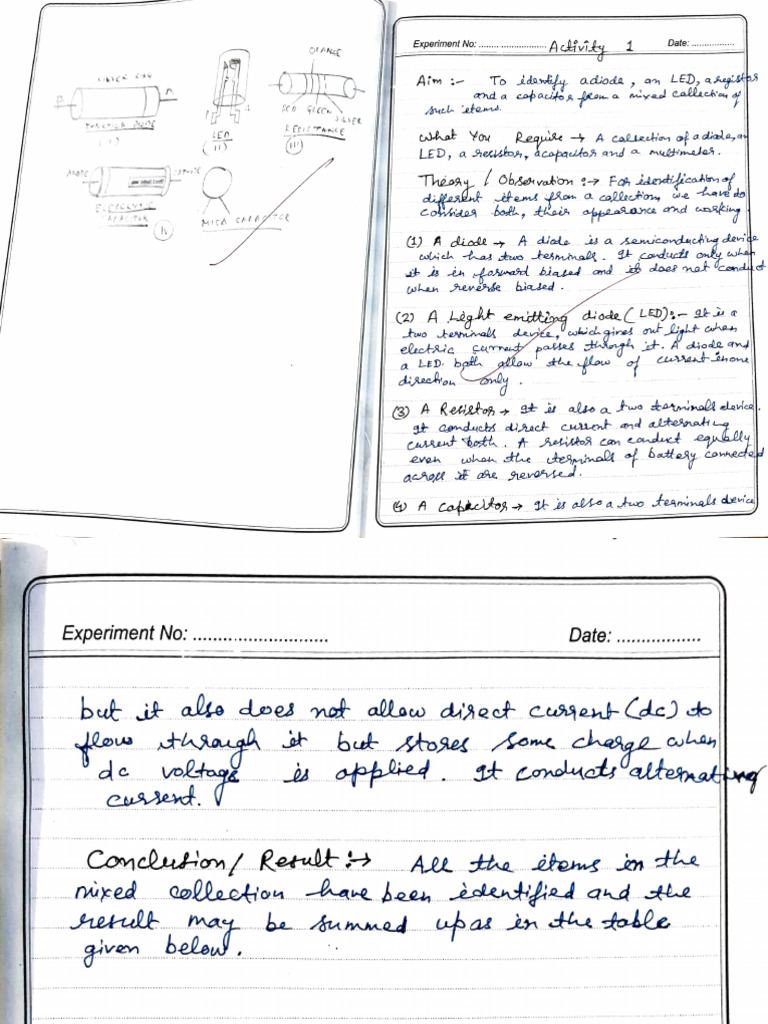 SILVER END
P N
JUNCTION DIODE
(I)
LED
(II)
ORANGE
RED GREEN SILVER
RESISTANCE
(III)
ANODE
CAPACITOR
IV
MICA CAPACITOR
Experiment No: .......................... Activity 1 Date: ................
Aim :- To identify a diode, an LED, a registor
and a capacitor from a mixed collection of
such items.
What You Require → A collection of a diode, an
LED, a resistor, a capacitor and a multimeter.
Theory / Observation :→ For identification of
different items from a collection, we have to
consider both, their appearance and working
(1) A diode → A diode is a semiconducting device
which has two terminals. It conducts only when
it is in forward biased and it does not conduct
when reverse biased.
(2) A Light emitting diode (LED):- It is a
two terminals device, which gives out light when
electric current passes through it. A diode and
a LED both allow the flow of current in one
direction only.
(3) A Resistor → It is also a two terminals device.
It conducts direct current and alternating
current both. A resistor can conduct equally
even when the terminals of battery connected
across it are reversed.
(4) A capacitor → It is also a two terminals device
Experiment No: ........................... Date: .................
but it also does not allow direct current (dc) to
flow through it but stores some charge when
dc voltage is applied. It conducts alternating
current.
Conclusion / Result :→ All the items in the
mixed collection have been identified and the
result may be summed up as in the table
given below.